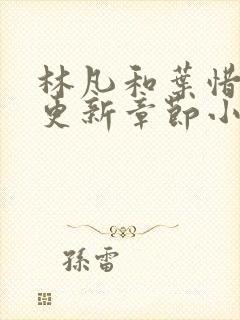 林凡和葉惜
更新章節小
孫雷